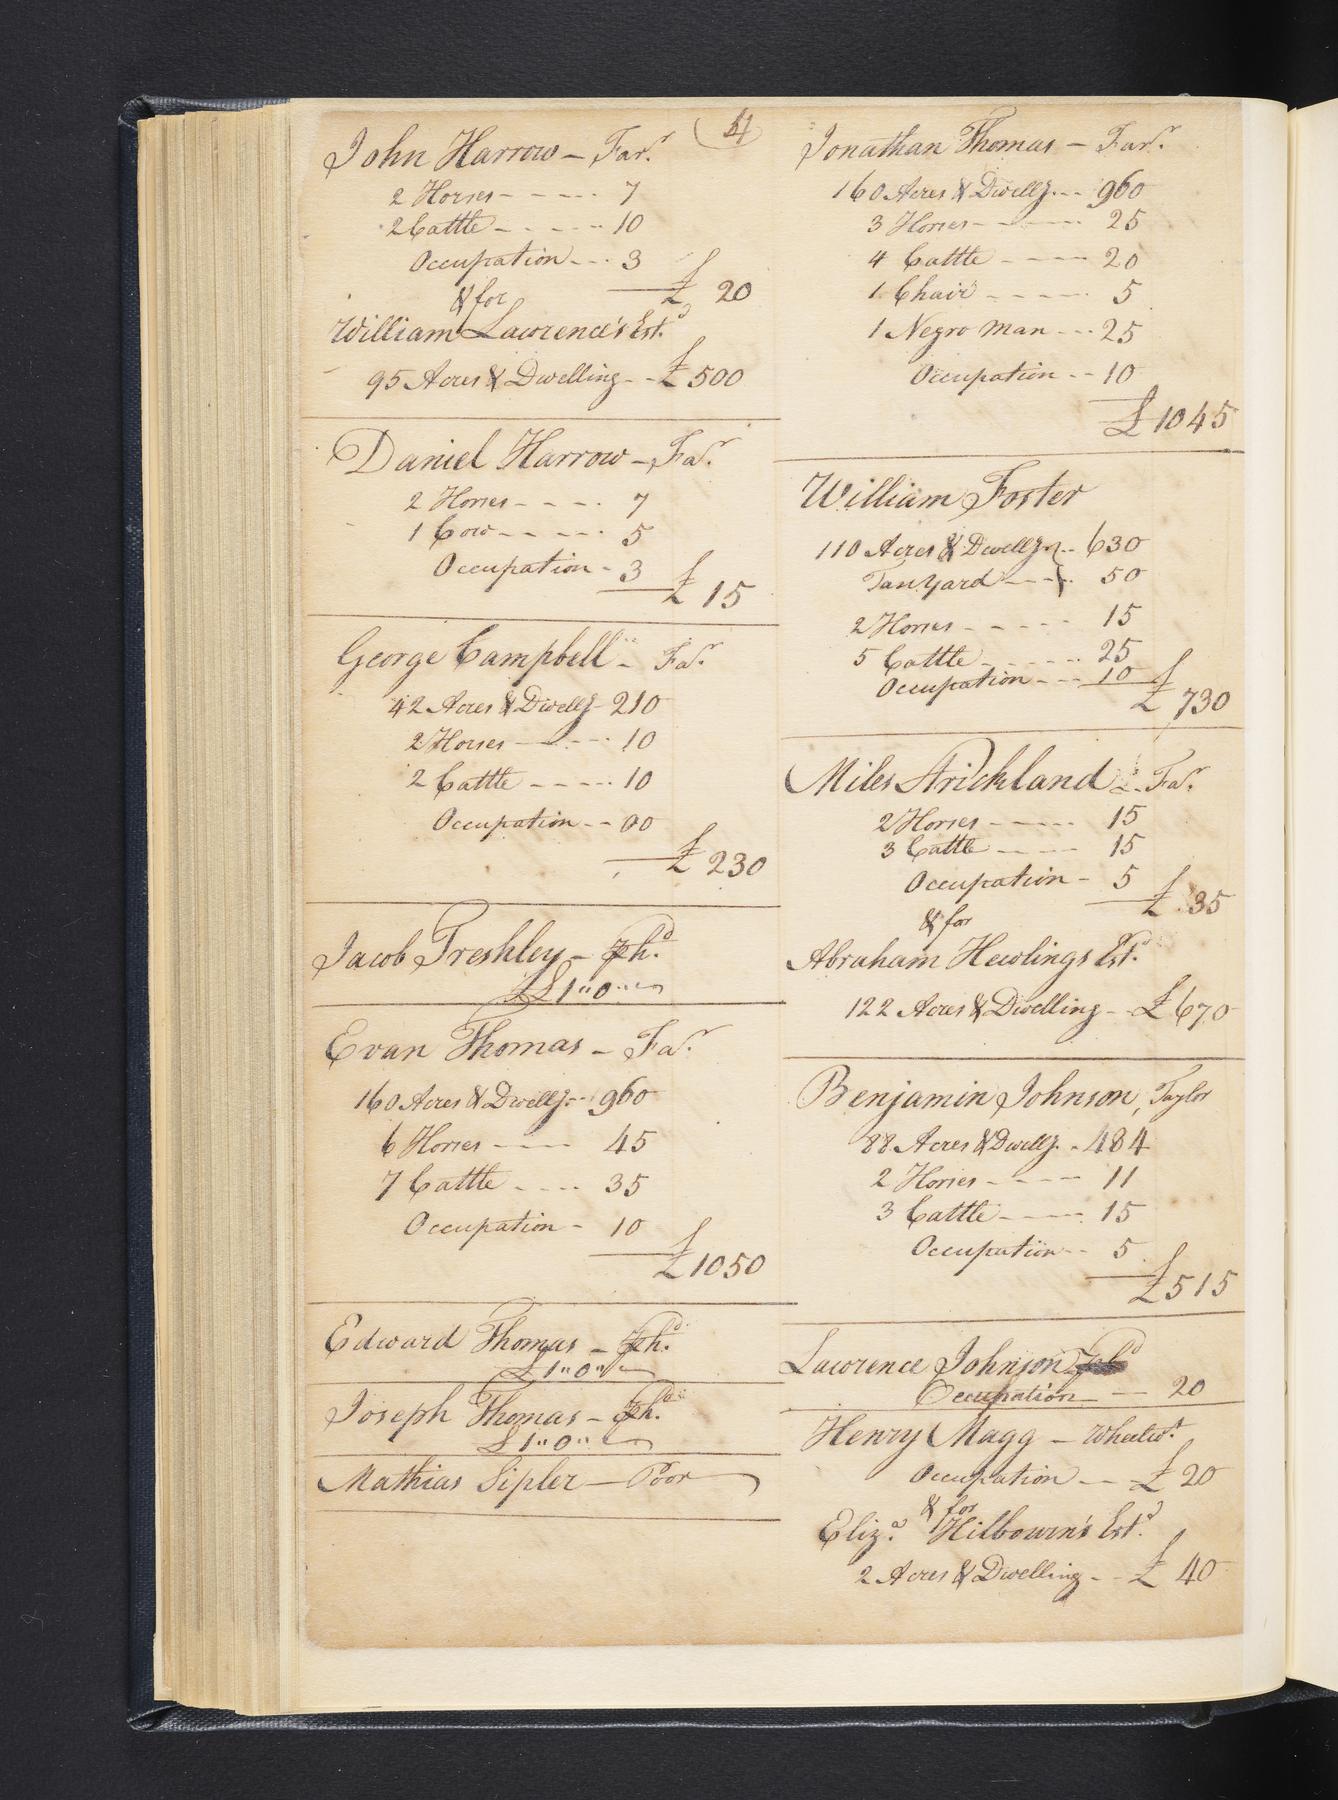 4
John Harrow - Far.r
2 Horses - - - - - 7
2 Cattle - - - - - 10
Occupation - - - 3
£ 20
& for
William Lawrence's Est.d
95 Acres & Dwelling - - £ 500
Daniel Harrow - Fa.r
2 Horses - - - - 7
1 Cow - - - - - 5
Occupation - 3
£ 15
George Campbell - Fa.r
42 Acres & Dwellg - 210
2 Horses - - - - 10
2 Cattle - - - - - 10
Occupation - - 00
£ 230
Jacob Freshley - Sh.d
£ 1 " 0 "
Evan Thomas - Fa.r
160 Acres & Dwellg. - - 960
6 Horses - - - - 45
7 Cattle - - - - 35
Occupation - 10
£ 1050
Edward Thomas - Sh.d
£ 1 " 0 "
Joseph Thomas - Sh.d
£ 1 " 0 "
Mathias Sipler - Poor
Jonathan Thomas - Far.r
160 Acres & Dwellg. - - 960
3 Horses - - - - - 25
4 Cattle - - - - - 20
1 Chair - - - - - 5
1 Negro Man - - - 25
Occupation - - 10
£ 1045
William Foster
110 Acres & Dwellg - - 630
Tan Yard - - - 50
2 Horses - - - - - 15
5 Cattle - - - - - 25
Occupation - - - 10
£ 730
Miles Strickland - Fa.r
2 Horses - - - - - 15
3 Cattle - - - - 15
Occupation - 5
£ 35
& for
Abraham Hewlings Est.d
122 Acres & Dwelling - - £ 670
Benjamin Johnson, Taylor
88 Acres & Dwellg. - 484
2 Horses - - - - - 11
3 Cattle - - - - 15
Occupation - - 5
£ 515
Lawrence Johnson
Occupation - - 20
Henry Magg - Wheelw.t
Occupation - - £ 20
& for
Eliz.a Hilbourn's Est.d
2 Acres & Dwelling - - £ 40